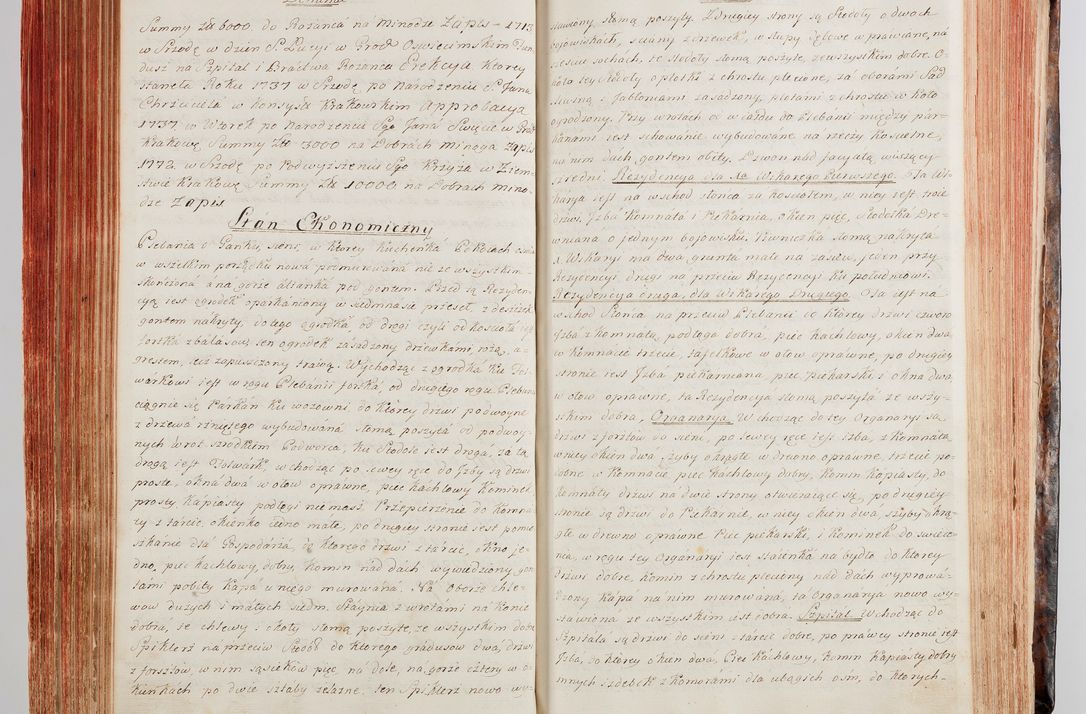 Summy Zł 6000. do Rożańca na Minodze Zapis – 1713
w Srzodę w dzien S. Łucyi w Grod. Oswiecimskim Fun
dusz na Szpital i Bractwa Rożańca Erekcya ktorey
stanęła Roku 1737 w Srzodę po Narodzeniu S. Jana
Chrzciciela w konsysto krakowskim Approbacya
1737 w Wtorek po Narodzeniu Sgo Jana Swięcie w Grod
Krakow. Summy Zł 3000 na Dobrach minoga Zapis
1772. w Srzodę po Podwyzszeniu Sgo Krzyża w Ziem
stwie Krakow. Summy Zł 10000 na Dobrach Mino
dze Zapis
Stan Ekonomiczny
Plebania o Ganku, sieni, w ktorey kuchenka
w wszelkim porządku nowa podmurowana nie ze wszystkim
skończona a na gorze altanka pod gontem. Przed tą Rezyden
cyą iest ogrodek oparkaniony w siedmnascie przeseł, z deszczek
gontem nakryty, do tego ogrodka od drogi czyli od koscioła
fortka z balasow, ten ogrodek zasadzony drzewkami, rożą, a
grestem, cięć zapuszczony trawą. Wychodząc z ogrodka ku Fol
warkowi iest w rogu Plebanii fortka od drugiego rogu Pleban
ciągnie się Parkan ku wozowni do ktorey drzwi podwoyne
z drzewa rżniętego wybudowana słomą poszyta od podwoy
nych wrot srzodkiem Podworca, ku Stodole iest droga, za tą
drogą iest Folwark, wchodząc po lewey ręce do Izby są drzwi
proste, okna dwa w ołow oprawne, piec kachlowy kominek
prosty kapiasty podłogi nie masz. Przepierzenie do komna
ty z tarcic, okienko iedno małe, po drugiey stronie iest pomie
szkanie dla Gospodarza, do ktorego drzwi z tarcic, okno ie
dno, piec kachlowy, dobry, komin nad dach wywiedziony gon
tami pobity kapa u niego murowana. Na oborze chle
wow dużych i małych siedm. Staynia z wrotami na konie
dobra, te chlewy i płoty słomą poszyte, ze wszystkim dobre
Spiklerz na przeciw Stodoł do ktorego gradusow dwa, drzwi
z forsztow, w nim sąsiekow pięć, na dole, na gorze cztery w o
kienkach po dwie sztaby żelazne, ten Spiklerz nowo wy
stawiony słomą poszyty. Z drugiey strony są Stodoły o dwoch
bojowiskach, sciany z drzewek, w słupy dębowe w prawiane, na
sochach, te Stodoły słomą poszyte, ze wszystkim dobre. O
koło tey Stodoły opłotki z chrostu plecione, za oborami Sad
sliwiną i Jabłoniami zasadzony, płotami z chrostu w koło
ogrodzony. Przy wrotach co wiazdu do Plebanii między par
kanami iest schowanie wybudowane na rzeczy koscielne,
na nim dach gontem obity, Dzwon nad facyatą wiszący
sredni. Rezydencya dla Xa Wikarego Pierwszego. Ta Wi
karya iest na wschod słonca za kosciołem, w niey iest troie
drzwi, Izba komnata i Piekarnia, okien pięć, Stodołka Dre
wniana o jednym bojowisku. Piwniczka słomą nakryta
a Wikaryi ma dwa grunta małe na zasiew, jeden przy
Rezydencyi drugi na przeciw Rezydencyi ku południowi.
Rezydencya druga, dla Wikarego Drugiego. Ta iest na
wschod słonca na przeciw Plebanii do ktorey drzwi czworo
Izba z komnatą, podłoga dobra, piec kachlowy, okien dwa,
w komnacie trzecie, tafelkowe w ołow oprawne, po drugiey
stronie iest Izba piekarniana, piec piekarski, i okna dwa
w ołow oprawne, ta Rezydencya słomą poszyta ze wszy
stkim dobra, Organarya. W chodząc do tey Organaryi są
drzwi z forsztow do sieni, po lewey ręce iest Izba, z komnatą
w niey okien dwa, szyby okrągłe w drewno oprawne, trzecie po
dobne w komnacie piec kachlowy dobry, komin kapiasty, do
komnaty drzwi na dwie strony otwieraiące się, po drugiey
stronie są drzwi do Piekarnii, w niey okien dwa, szyby okrą
głe w drewno oprawne Piec piekarski, i kominek do swiece
nia, w rogu tey Organaryi iest stajenka na bydło do ktorey
drzwi dobre, komin z chrostu pleciony nad dach wyprowa
dzony kapa na nim murowana, ta Organarya nowo wy
stawiona ze wszystkim iest dobra. Szpital. Wchodząc do
Szpitala są drzwi do sieni z tarcic dobre, po prawey stronie iest
Izba, do ktorey okien dwa, Piec kachlowy, komin kapiasty dobry
innych izdebek z komorami dla ubogich osm, do ktorych